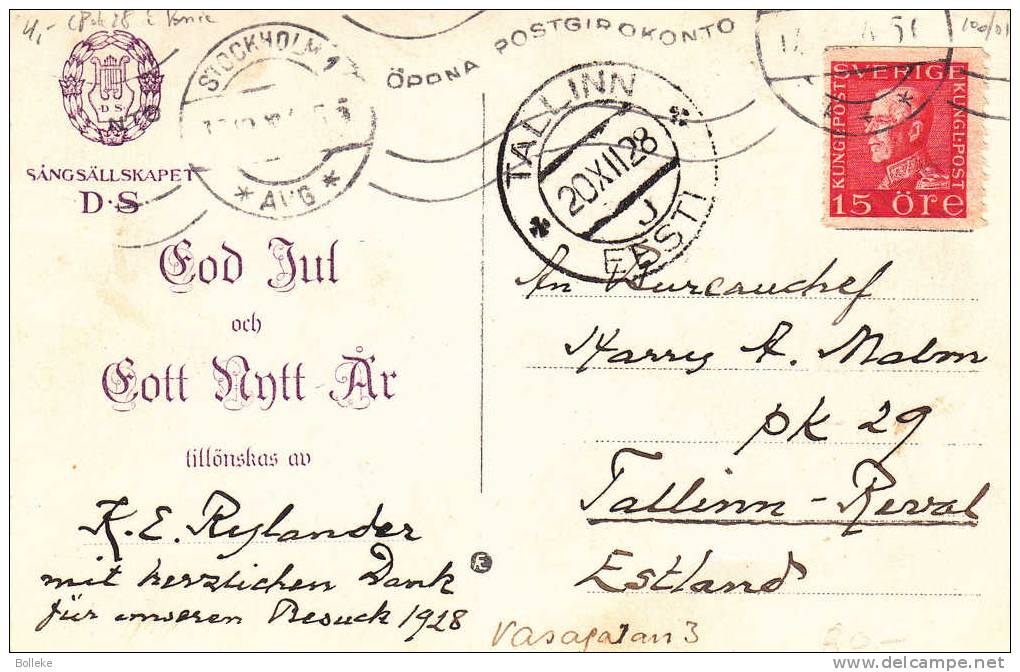 STOCKHOLM 1
* AVG *
ÖPPNA POSTGIROKONTO
NTO
TALLINN
20XII28
J
EESTI
SVERIGE
KUNGL.POST
KUNGL.POST
15 ÖRE
D S
SÅNGSÄLLSKAPET
D·S
God Jul
och
Gott Nytt År
tillönskas av
K. E. Rylander
mit herzlichen Dank
für unseren Besuch 1928
An Bureauchef
Harry A. Malm
pk 29
Tallinn-Reval
Estland
Vasagatan 3
Bolleke
www.delcampe.net